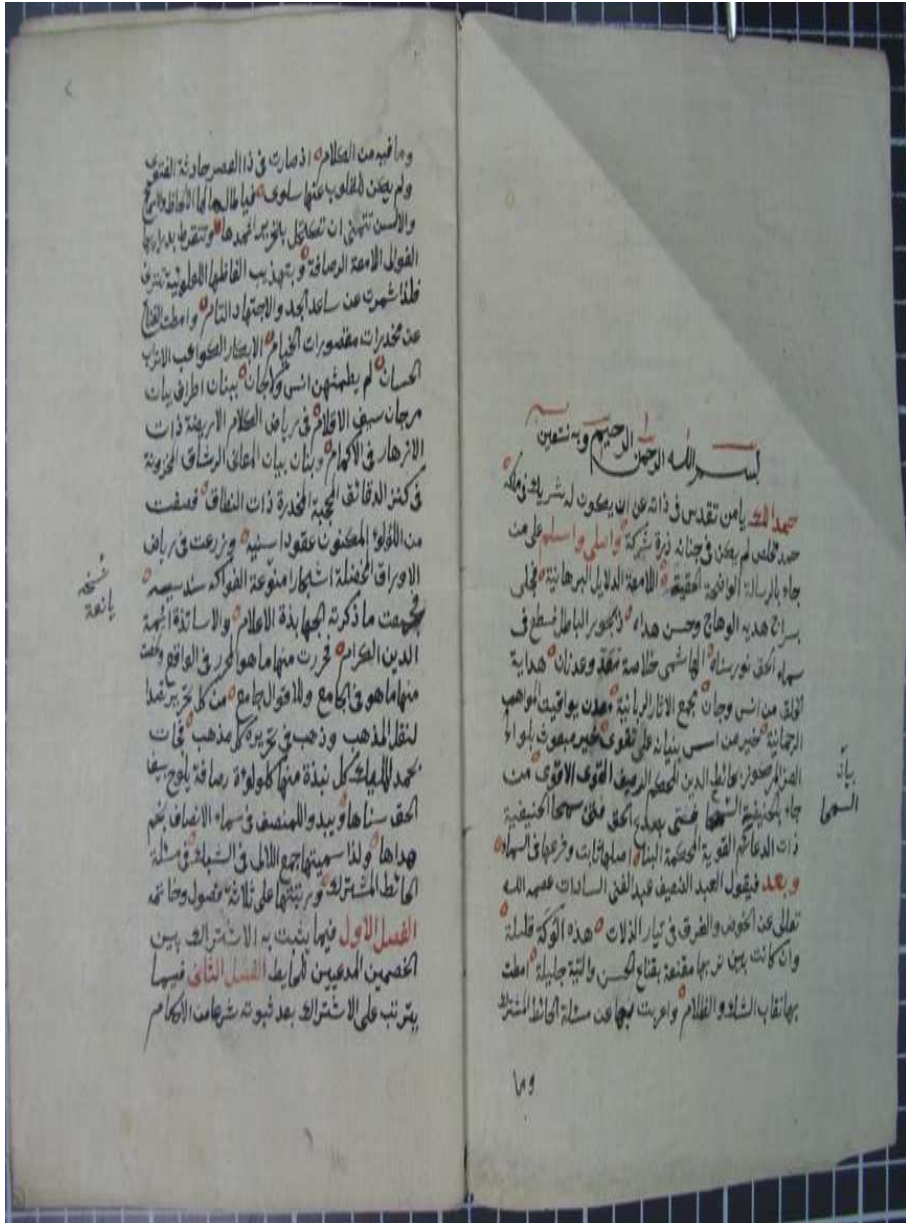 بسم الله الرحمن الرحيم وبه نستعين
حمدا لك يا من تقدس في ذاته عن ان يكون له شريك في ملكه
حمد مخلص لم يكن في جنانه ذرة شركة واصلي واسلم على من
جاء بالرسالة الواضحة الحقيقة اللامعة الدلايل البرهانية فجلى
بسراج هديه الوهاج وحسن هداه ديجور الباطل فسطع في
سماء الحق نور سناه الهاشمي خلاصة معد وعدنان هداية
الخلق من انس وجان مجمع الاثار الربانية معدن يواقيت المواهب
الرحمانية خير من اسس بنيانه على تقوى خير مبعوث بلواء
العز المرصوف بحائط الدين المحكم الرصيف القوى الاقوى من
جاء بالحنيفية السمحا فمتى بهديه الحق فتى سمحا الحنيفية
ذات الدعائم القوية المحكمة البناء اصلها ثابت وفرعها في السماء
وبعد فيقول العبد الضعيف عبد الغني السادات عصمه الله
تعالى عن الخوض والغرق في تيار الزلات هذه الوكة قليلة
وان كانت بين تربها مقنعة بقناع الحسن واتية جليلة امطت
بها نقاب الشك والظلام واعربت بها عن مسئلة الحائط المشترك
وما
بيان
السمحا
وما فيه من الكلام اذ صارت في ذا العصر حادثة الفتوى
ولم يكن للقلوب عنها سلوى فيا طال ما لها الالحاظ والسمع
والالسن تتمنى ان تكتحل باثمدها وتتقرط بدراريها
الغوالى اللامعة الرصافة وبتهذيب الفاظها اللؤلؤية تعترف
فلذا شمرت عن ساعد الجد والاجتهاد التام وامطت القناع
عن مخدرات مقصورات الخيام الابكار الكواعب الاتراب
الحسان لم يطمثهن انس ولا جان ببنان اطراف بيات
مرجان سيف الاقلام في رياض الكلام الاريضة ذات
الازهار في الاكمام وبنان بيان المعاني الرشاق المخزونة
في كنز الدقائق المحجبة المخدرة ذات النطاق فصفت
من اللؤلؤ المكنون عقودا سنية وزرعت في رياض
الاوراق المخضلة اشجارا منوعة الفواكه سندسيه
فجمعت ما ذكرته الجهابذة الاعلام والاساتذة ائمة
الدين الكرام فحررت منها ما هو المحرر في الواقع وجمعت
منها ما هو في الجامع وللاقوال جامع من كل نحرير تصدا
لنقل المذهب وذهب في تحريره كل مذهب فجات
بحمد المليك كل نبذة منها كلؤلؤة رصافة يلوح بيضا
الحق سناها ويبدو للمنصف في سماء الانصاف نجم
هداها ولذا سميتها جمع اللالى في الشباك في مسئلة
الحائط المشترك ورتبتها على ثلاثة فصول وخاتمه
الفصل الاول فيما يثبت به الاشتراك بين
الخصمين المدعيين للحايط الفصل الثاني فيما
يترتب على الاشتراك بعد ثبوته شرعا من الاحكام
نسخه
يانعة